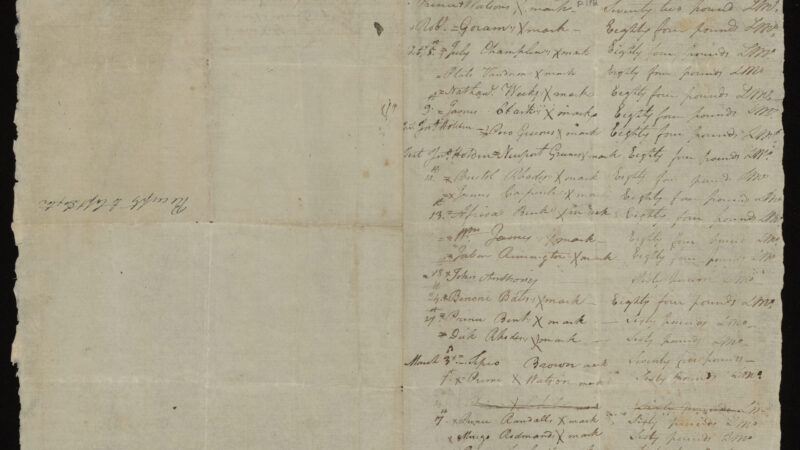 Watson X mark Seventy two pound L Mo
Robt = Goram X mark Eighty four pounds LMo
July Champlin X mark Eighty four pounds LMo
Plato Vandrum X mark Eighty four pounds LMo
Nathanl Weeks X mark Eighty four pounds LMo
9 James Clarke X mark Eighty four pounds LMo
Test Jno Holden Pero Greene X mark Eighty four pounds LMo
Test Jno Holden Newport Greene X mark Eighty four pounds LMo
Bristol Rhodes X mark Eighty four pound LMo
James Carpenter X mark Eighty four pounds LMo
13 Africa Burk X mark Eighty four pounds LMo
Wm James X mark Eighty four pound LMo
Jabin Remington X mark Eighty four pounds LMo
18 John Anthony Sixty pounds LMo
24 Benone Bates X mark Eighty four pounds LMo
Prime Bent X mark Sixty pounds LMo
Dick Rhodes X mark Sixty pounds LMo
March 3 Brown mark Seventy pounds
Prime X Watson mark Sixty pounds LMo
7 Prime Randall X mark Sixty pounds LMo
Mingo Rodman X mark Sixty pounds LMo
Receipts to Capt